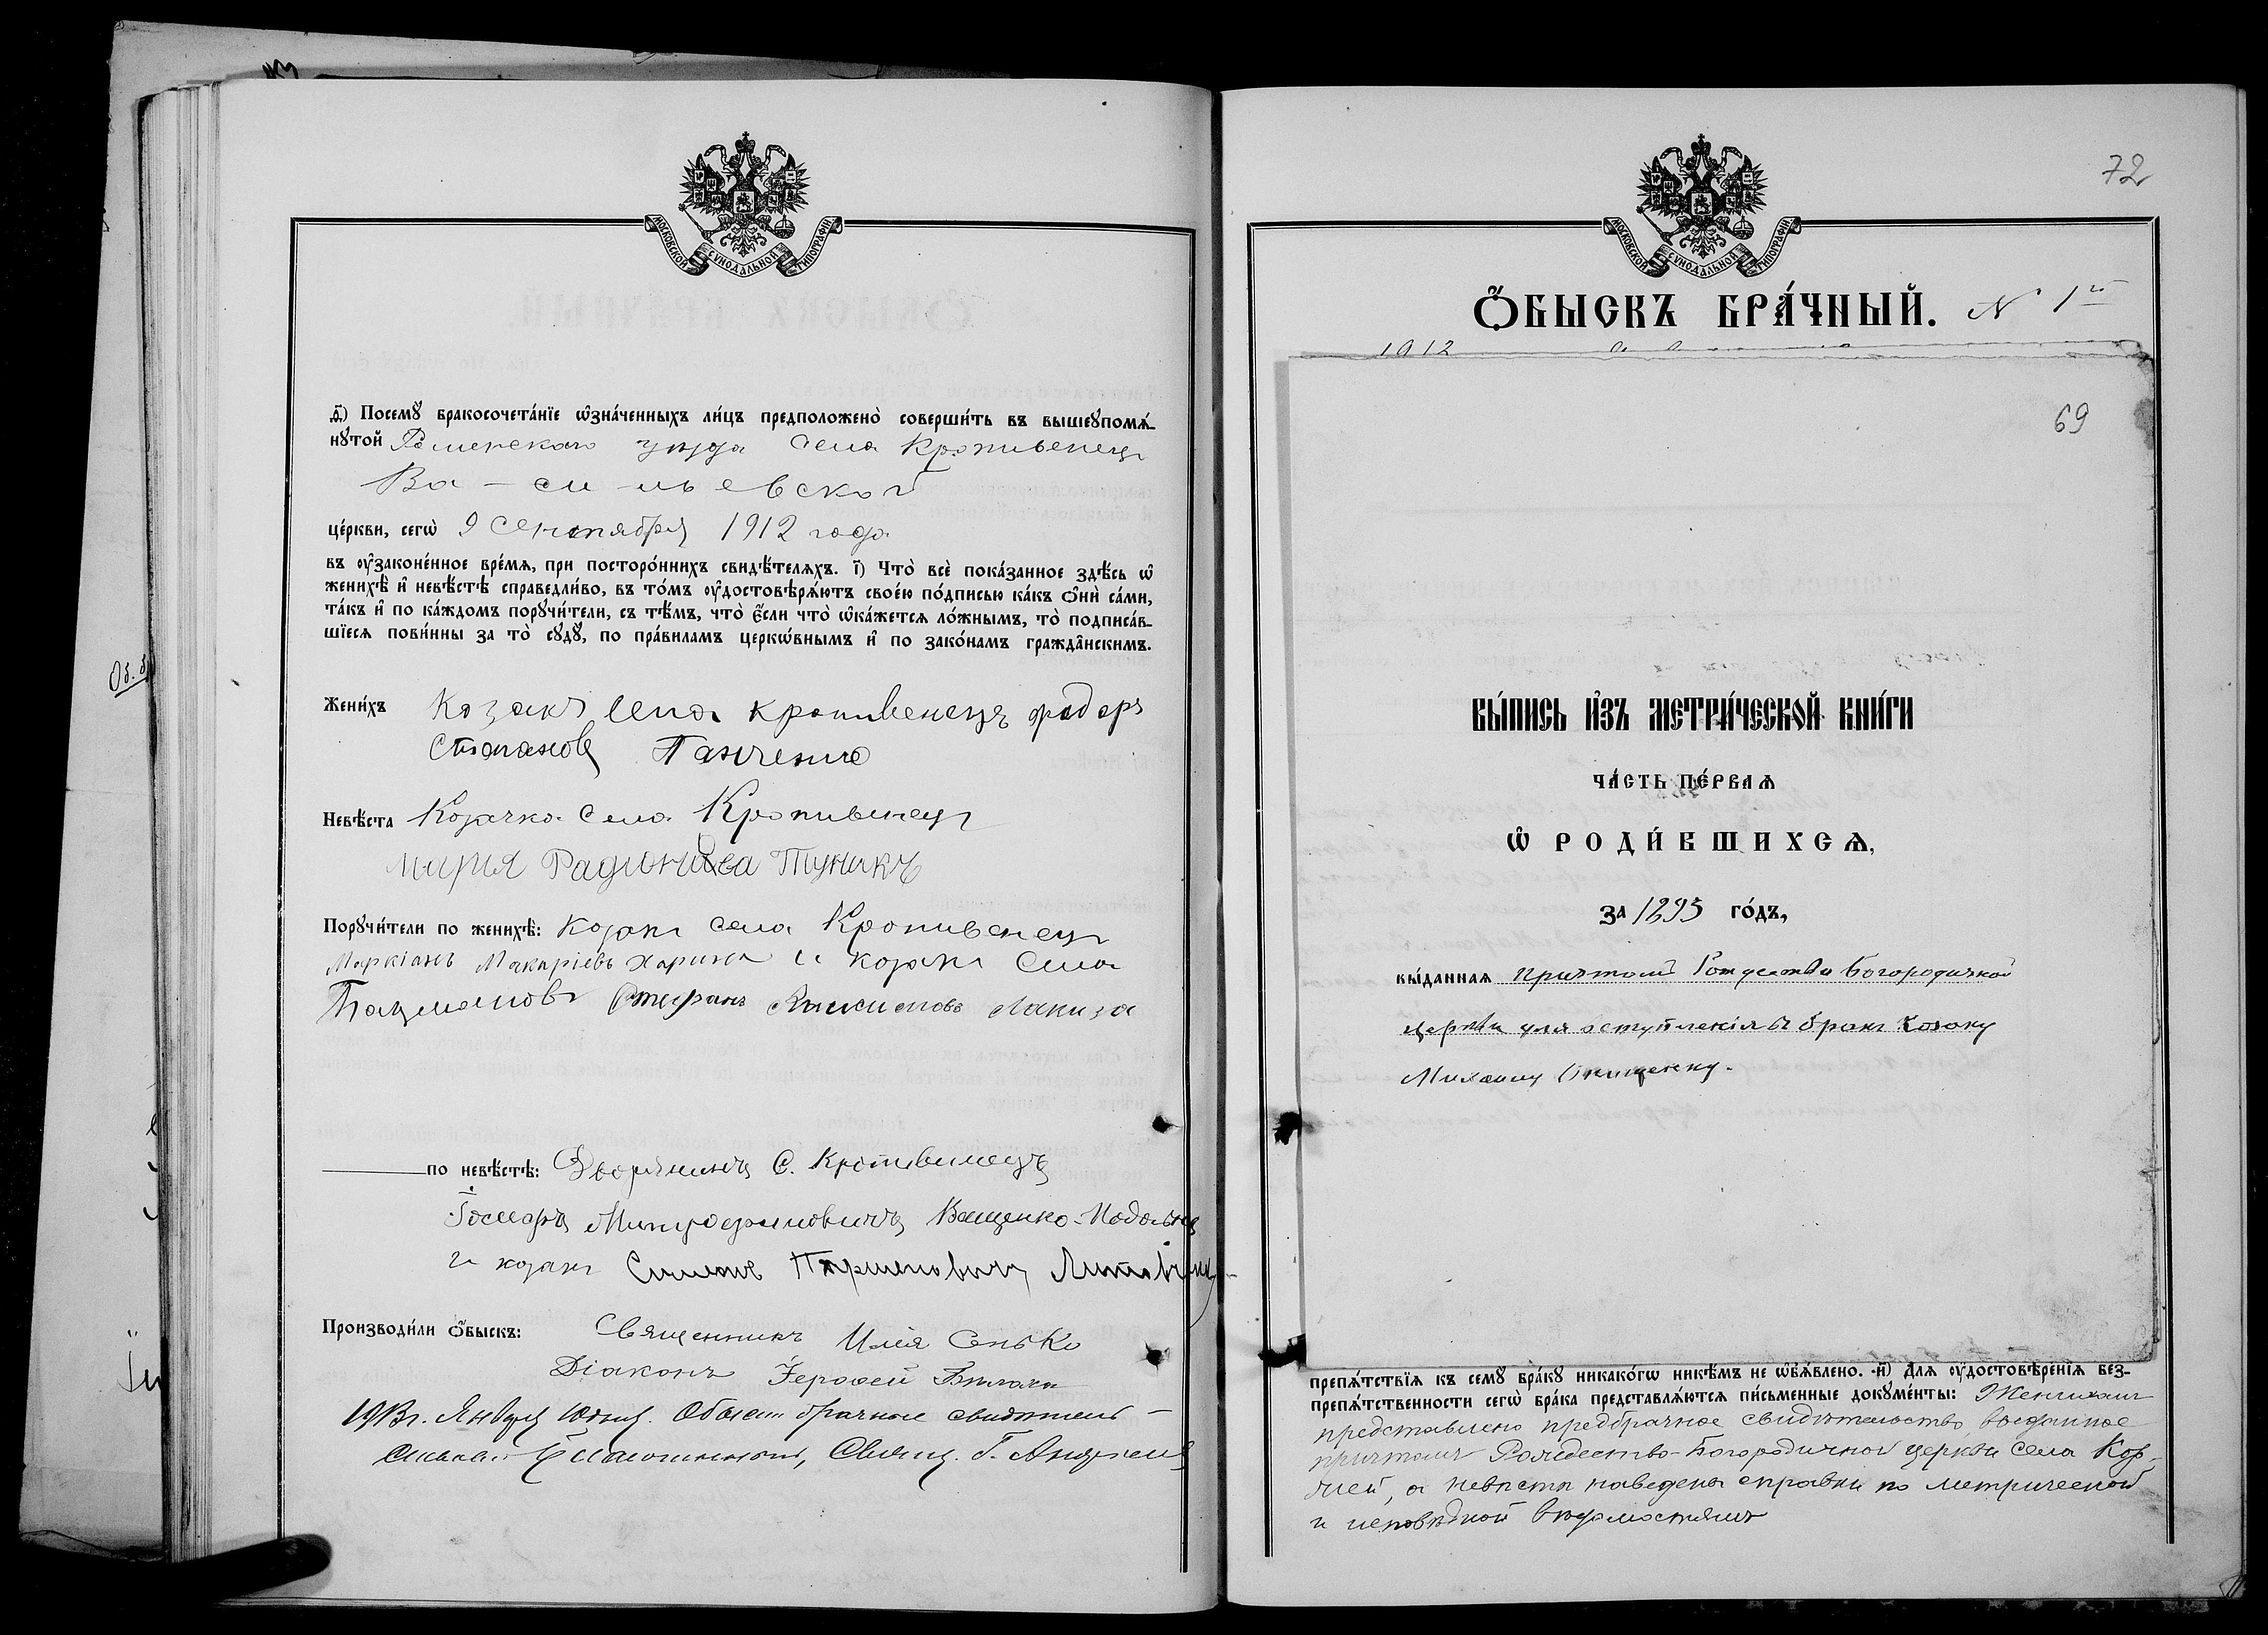 МОСКОВСКОЙ СѴНОДАЛЬНОЙ ТИПОГРАФІИ
д҃) Посемꙋ̀ бракосочета́нїе ѡ҆зна́ченныхъ ли́цъ предположено̀ соверши́ть въ вышеꙋпомѧ́-
нꙋтой Роменскаго уѣзда села Кропивенецъ
Ва-сильевской
це́ркви, сегѡ̀ 9 Сентября 1912 года
въ ᲂу҆законе́нное вре́мѧ, при посторо́ннихъ свидѣ́телѧхъ. і҃) Что̀ всѐ пока́занное здѣ́сь ѡ҆
женихѣ̀ и҆ невѣ́стѣ справедли́во, въ то́мъ ᲂу҆достовѣрѧ́ютъ свое́ю по́дписью ка́къ ѻ҆нѝ са́ми,
та́къ и҆ по ка́ждомъ порꙋчи́тели, съ тѣ́мъ, что̀ є҆́сли что̀ ѡ҆ка́жетсѧ ло́жнымъ, то̀ подписа́в-
шїесѧ пови́нны за то̀ сꙋдꙋ̀, по пра́виламъ церкѡ́внымъ и҆ по зако́намъ гражда́нскимъ.
Жени́хъ Козакъ села Кропивенецъ Федоръ
Стефановъ Панченко
Невѣ́ста Козачка села Кропивенецъ
Мария Радионова Туникъ
Порꙋчи́тели по женихѣ̀: Козакъ села Кропивенецъ
Маркіанъ Макаріевъ Харина и козакъ села
Бацмановъ Стефанъ Лакиза
по невѣ́стѣ: Дворянинъ С. Кропивенецъ
Митрофановичъ Ващенко-
и козакъ Симонъ Парменовичъ
Производи́ли ѻ҆́быскъ: Священникъ Илія Сенько
Діаконъ Іерофей
1913 г. Января 10 дня. Обыски брачные свидѣтель-
Свящ. Г.
72
МОСКОВСКОЙ СѴНОДАЛЬНОЙ ТИПОГРАФІИ
Ѻ҆́БЫСКЪ БРА́ЧНЫЙ. № 1й
1912
69
ВЫ́ПИСЬ И҆ЗЪ МЕТРИ́ЧЕСКОЙ КНИ́ГИ
ЧА́СТЬ ПЕ́РВАѦ
Ѡ҆ РОДИ́ВШИХСѦ,
за 1893 го́дъ,
вы́данная Причтомъ Рождества Богородичной
церкви для вступленія въ бракъ козаку
Михаилу Онищенку.
препѧ́тствїѧ къ семꙋ̀ бра́кꙋ никако́гѡ никѣ́мъ не ѡ҆б̾ѧ́влено. и҃) Длѧ ᲂу҆достовѣ́ренїѧ без-
препѧ́тственности сегѡ̀ бра́ка представлѧ́ютсѧ пи́сьменные докꙋме́нты: Женихомъ
представлено предбрачное свидѣтельство, выданное
причтомъ Рождество-Богородичной церкви села Кор-
бней, о невѣстѣ наведены справки по метрической
и исповѣдной вѣдомостямъ